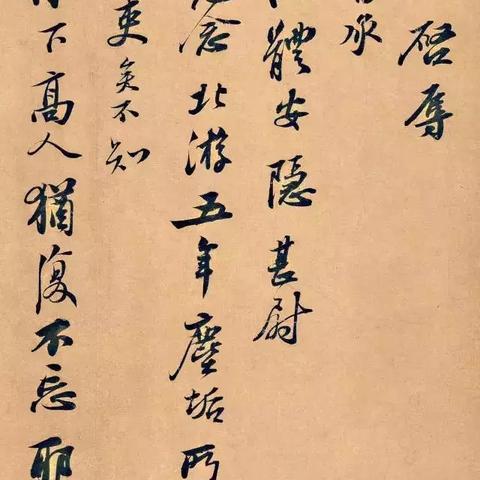 啓辱
承
體安隱甚尉
念北游五年塵垢所
吏矣不知
下高人猶復不忘耶